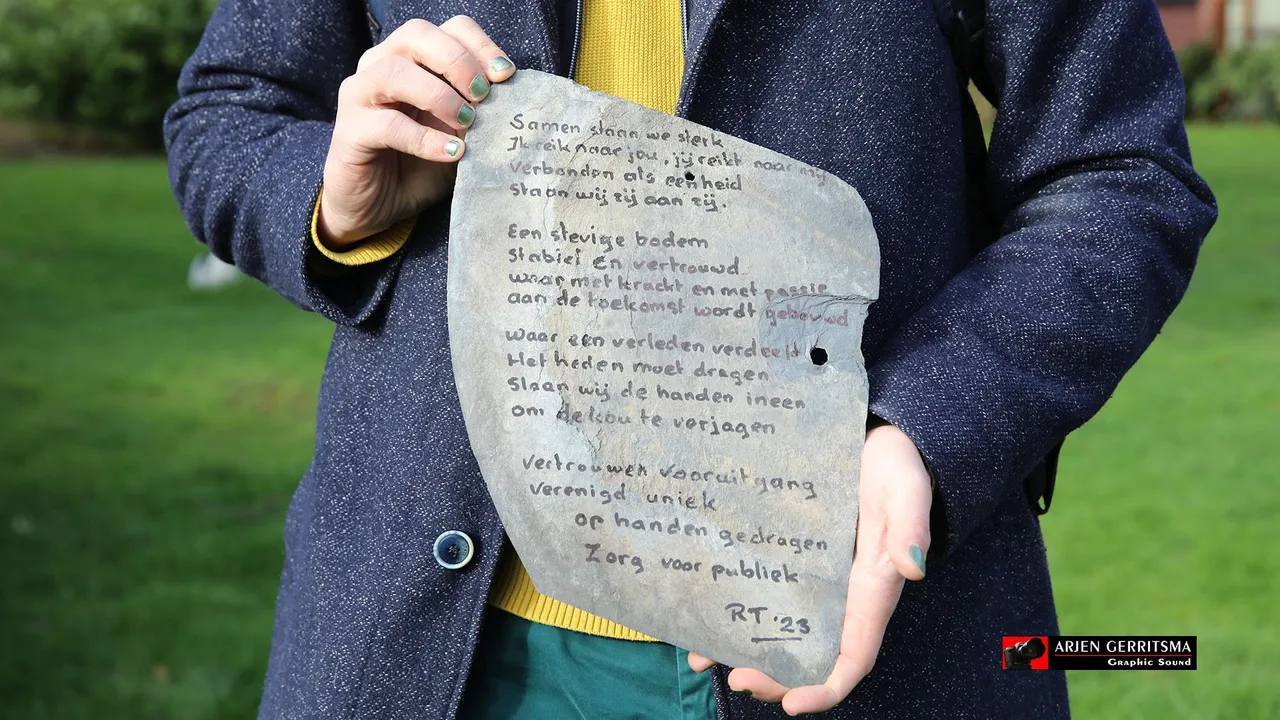 Samen staan we sterk
Ik reik naar jou, jij reikt naar mij
verbonden als eenheid
staan wij zij aan zij.
Een stevige bodem
stabiel En vertrouwd
waar met kracht en met passie
aan de toekomst wordt gebouwd
waar een verleden verdeelt
Het heden moet dragen
Slaan wij de handen ineen
om de kou te verjagen
vertrouwen vooruitgang
verenigd uniek
op handen gedragen
Zorg voor publiek
RT '23
ARJEN GERRITSMA
Graphic Sound